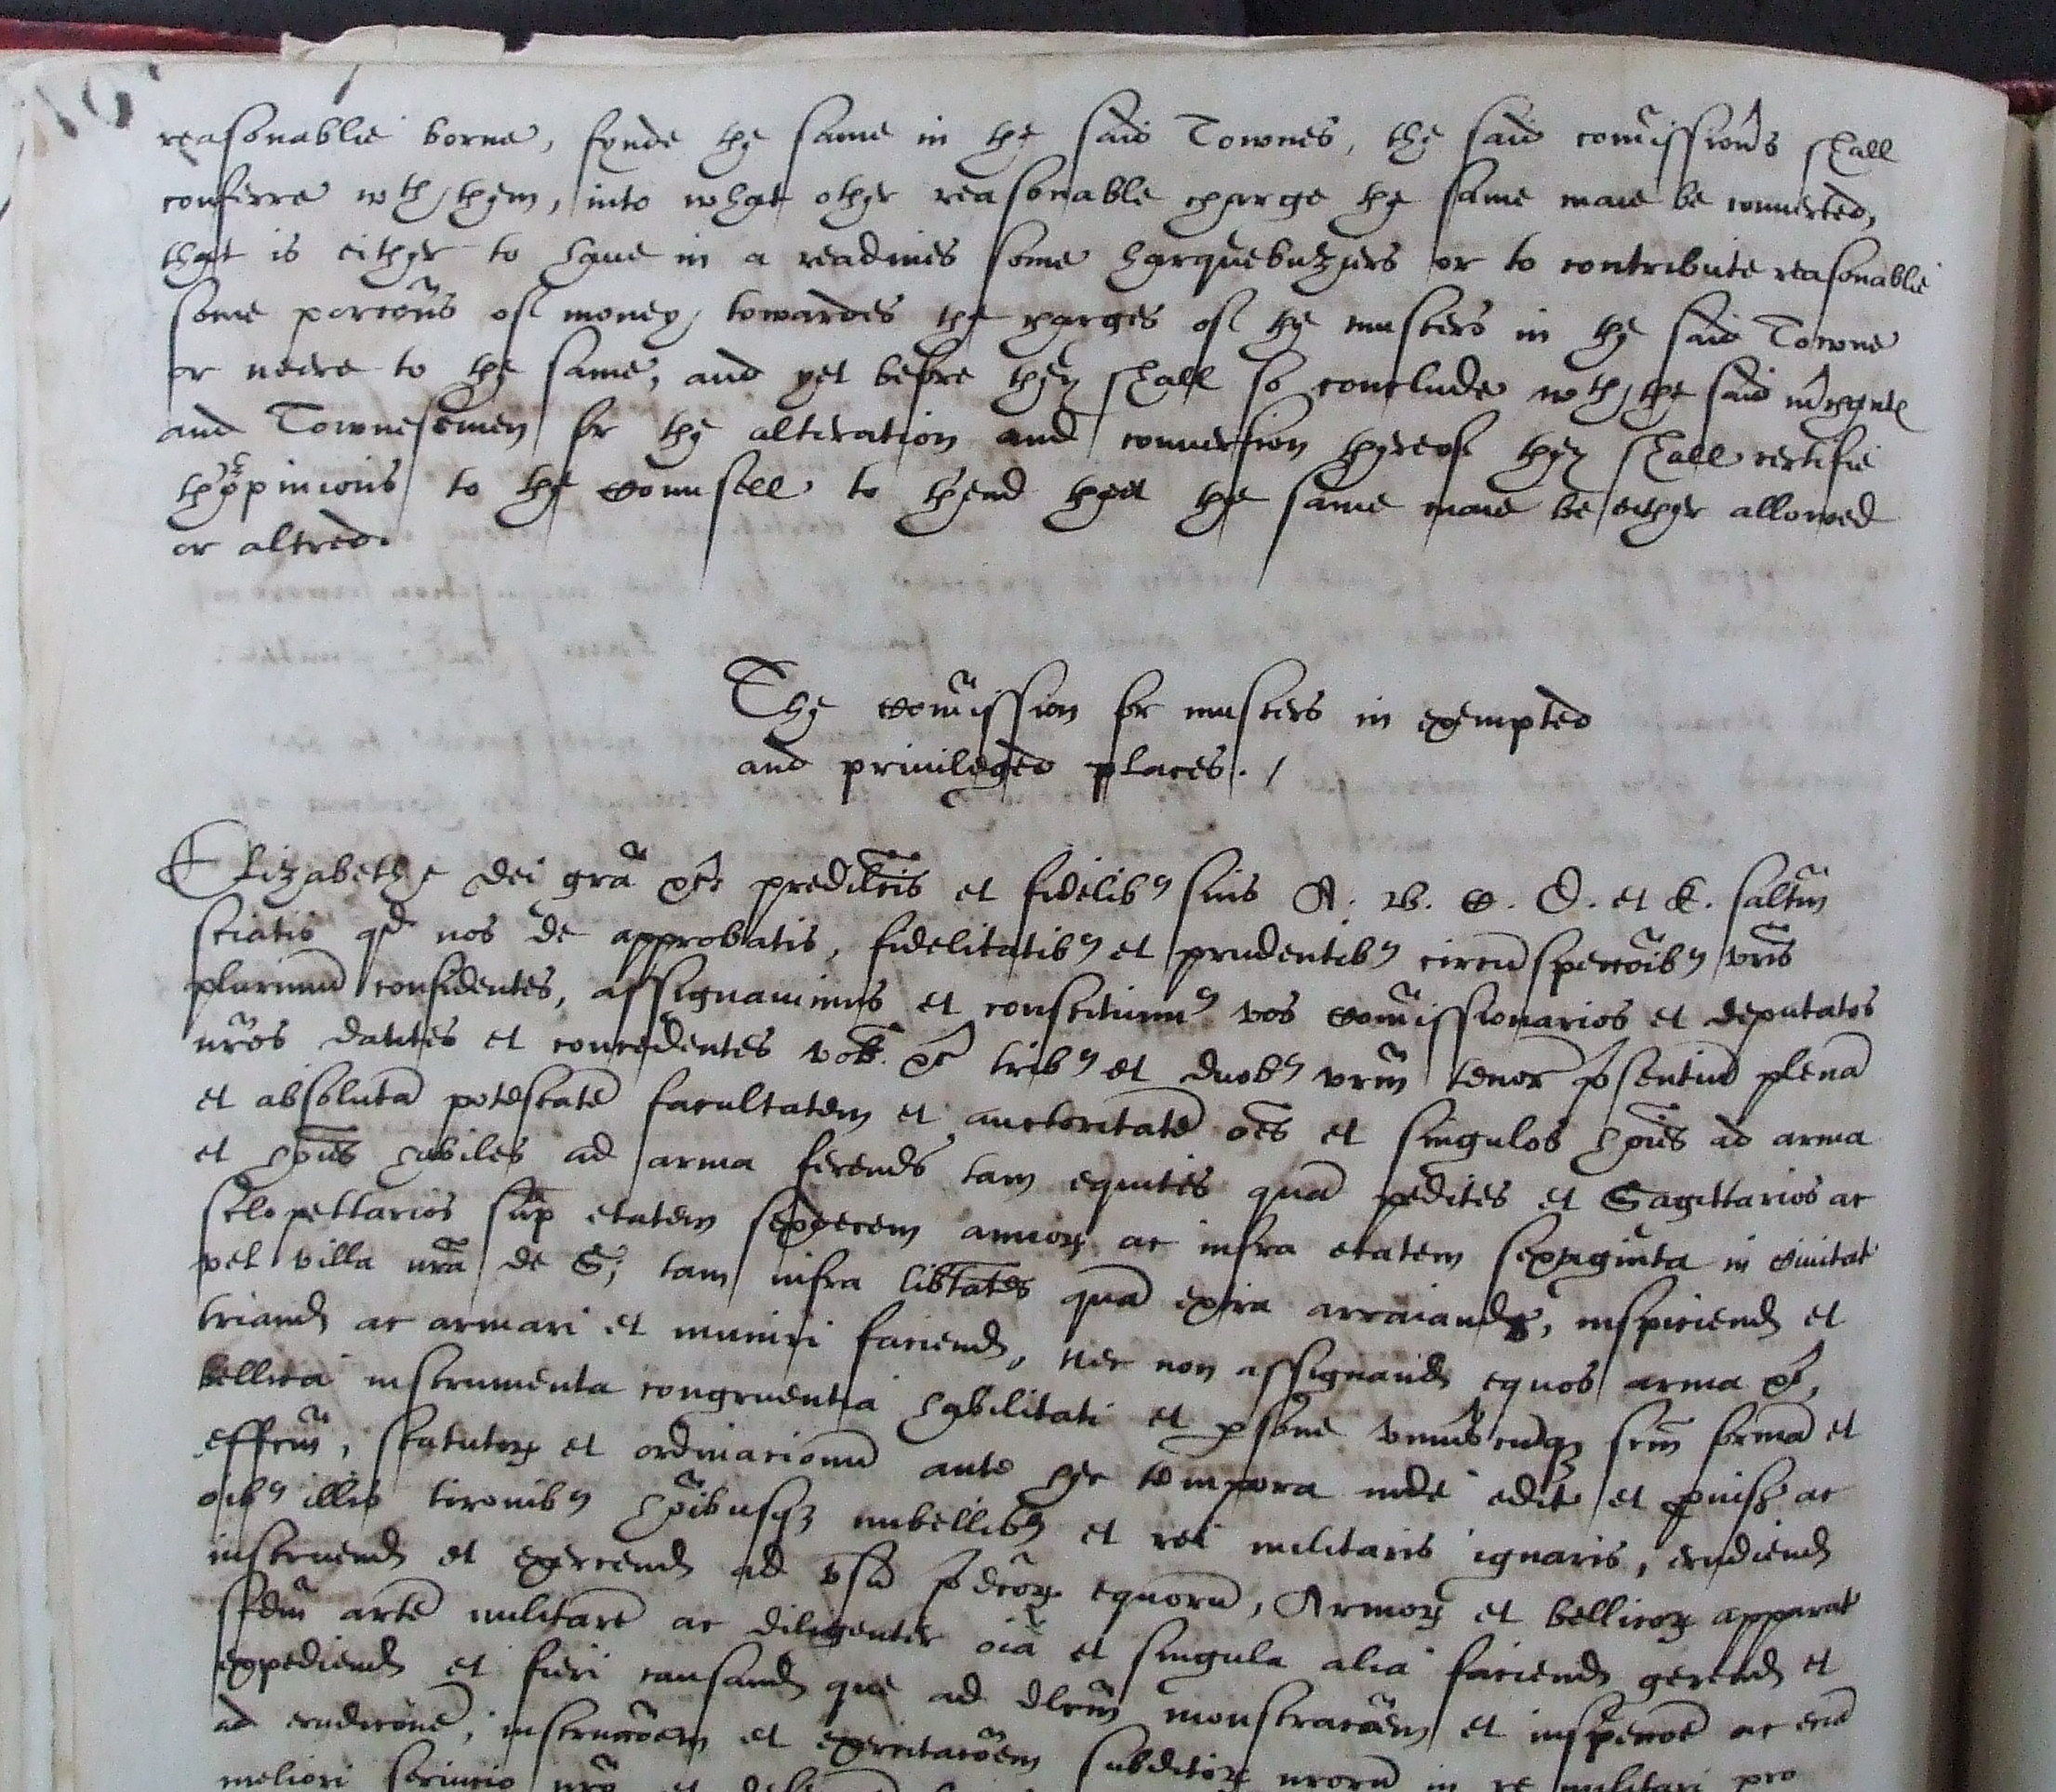 reasonablie borne, fynde the same in the said Townes, the said com̃ission̂s shall
conferre wth them, into what other reasonable charge the same maie be conuerted,
that is either to haue in a readines some harquebutziers or to contribute reasonablie
some porcõns of money towardes the charges of the musters in the said Towne
or neere to the same, and yet before they shall so conclude wth the said m̂chantꝭ
and Townesemen for the alteration and conuersion thereof they shall certifie
their opinions to the Counsell to thend that the same maie be either allowed
or altred.
The Com̃ission for musters in exempted
and priuileged places. /
Elizabethe dei grã &c̃ predilc̃is et fidelibꝰ suis A. B. C. D. et E. saltm̃
sciatis qd nos de approbatis, fidelitatibꝰ et prudentibꝰ circũspecc̃oibꝰ vr̃is
plurimũ confidentes, assignauimus et constituimꝰ vos Com̃issionarios et deputatos
nr̃os dantes et concedentes vob. &c̃ tribꝰ et duobꝰ vrm̃ tenore p̃sentiũ plenã
et absolutã potestatẽ facultatem et auctoritatẽ oẽs et singulos hoĩes ad arma
et hoĩes habiles ad arma ferend tam equites quã pedites et Sagittarios ac
sclopettarios sup̃ etatem sexdecem annoꝝ ac infra etatem sexaginta in Ciuitat
vel villa nr̃a de S, tam infra lib̃tates quã extra arraiand, inspiciend et
triand ac armari et muniri faciend, Nec non assignand equos arma &c̃,
bellica instrumenta congruentia habilitati et ꝑsone vniuscuiusqꝫ scm̃ formã et
effcm̃, statutoꝝ et ordinacionũ ante hec tempora inde edit et ꝓuis ac
oĩbꝰ illis tironibꝰ hoĩbusqꝫ imbellibꝰ et rei militaris ignaris, erudiend
instruend et exercend ad vsũ p̃dcõꝝ equorũ, Armoꝝ et bellicoꝝ apparat
scdm̃ artẽ militarẽ ac diligenter oĩa et singula alia faciend gerend et
expediend et fieri causand que ad dlcm̃ monstracõem et inspeccõẽ ac eciã
ad erudicõnẽ, instruccõem et exercitacõem subditoꝝ nrorũ in re militari pro
meliori seruicio nr̃o et